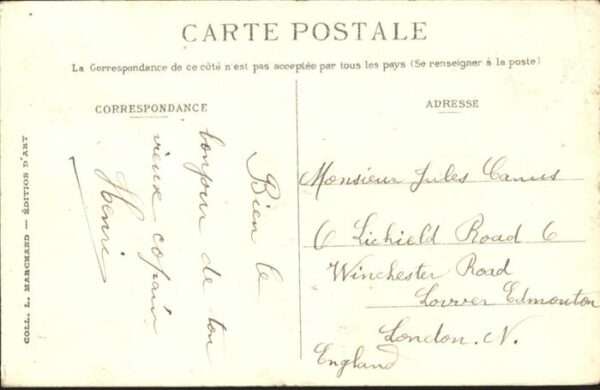 CARTE POSTALE
La Correspondance de ce côté n'est pas acceptée par tous les pays (Se renseigner à la poste)
CORRESPONDANCE
ADRESSE
Bien le
bonjour de ton
vieux copain
Henri
Monsieur Jules Camus
6 Lichield Road 6
Winchester Road
Lowver Edmonton
London. N.
England
COLL. L. MARCHAND — ÉDITION D'ART